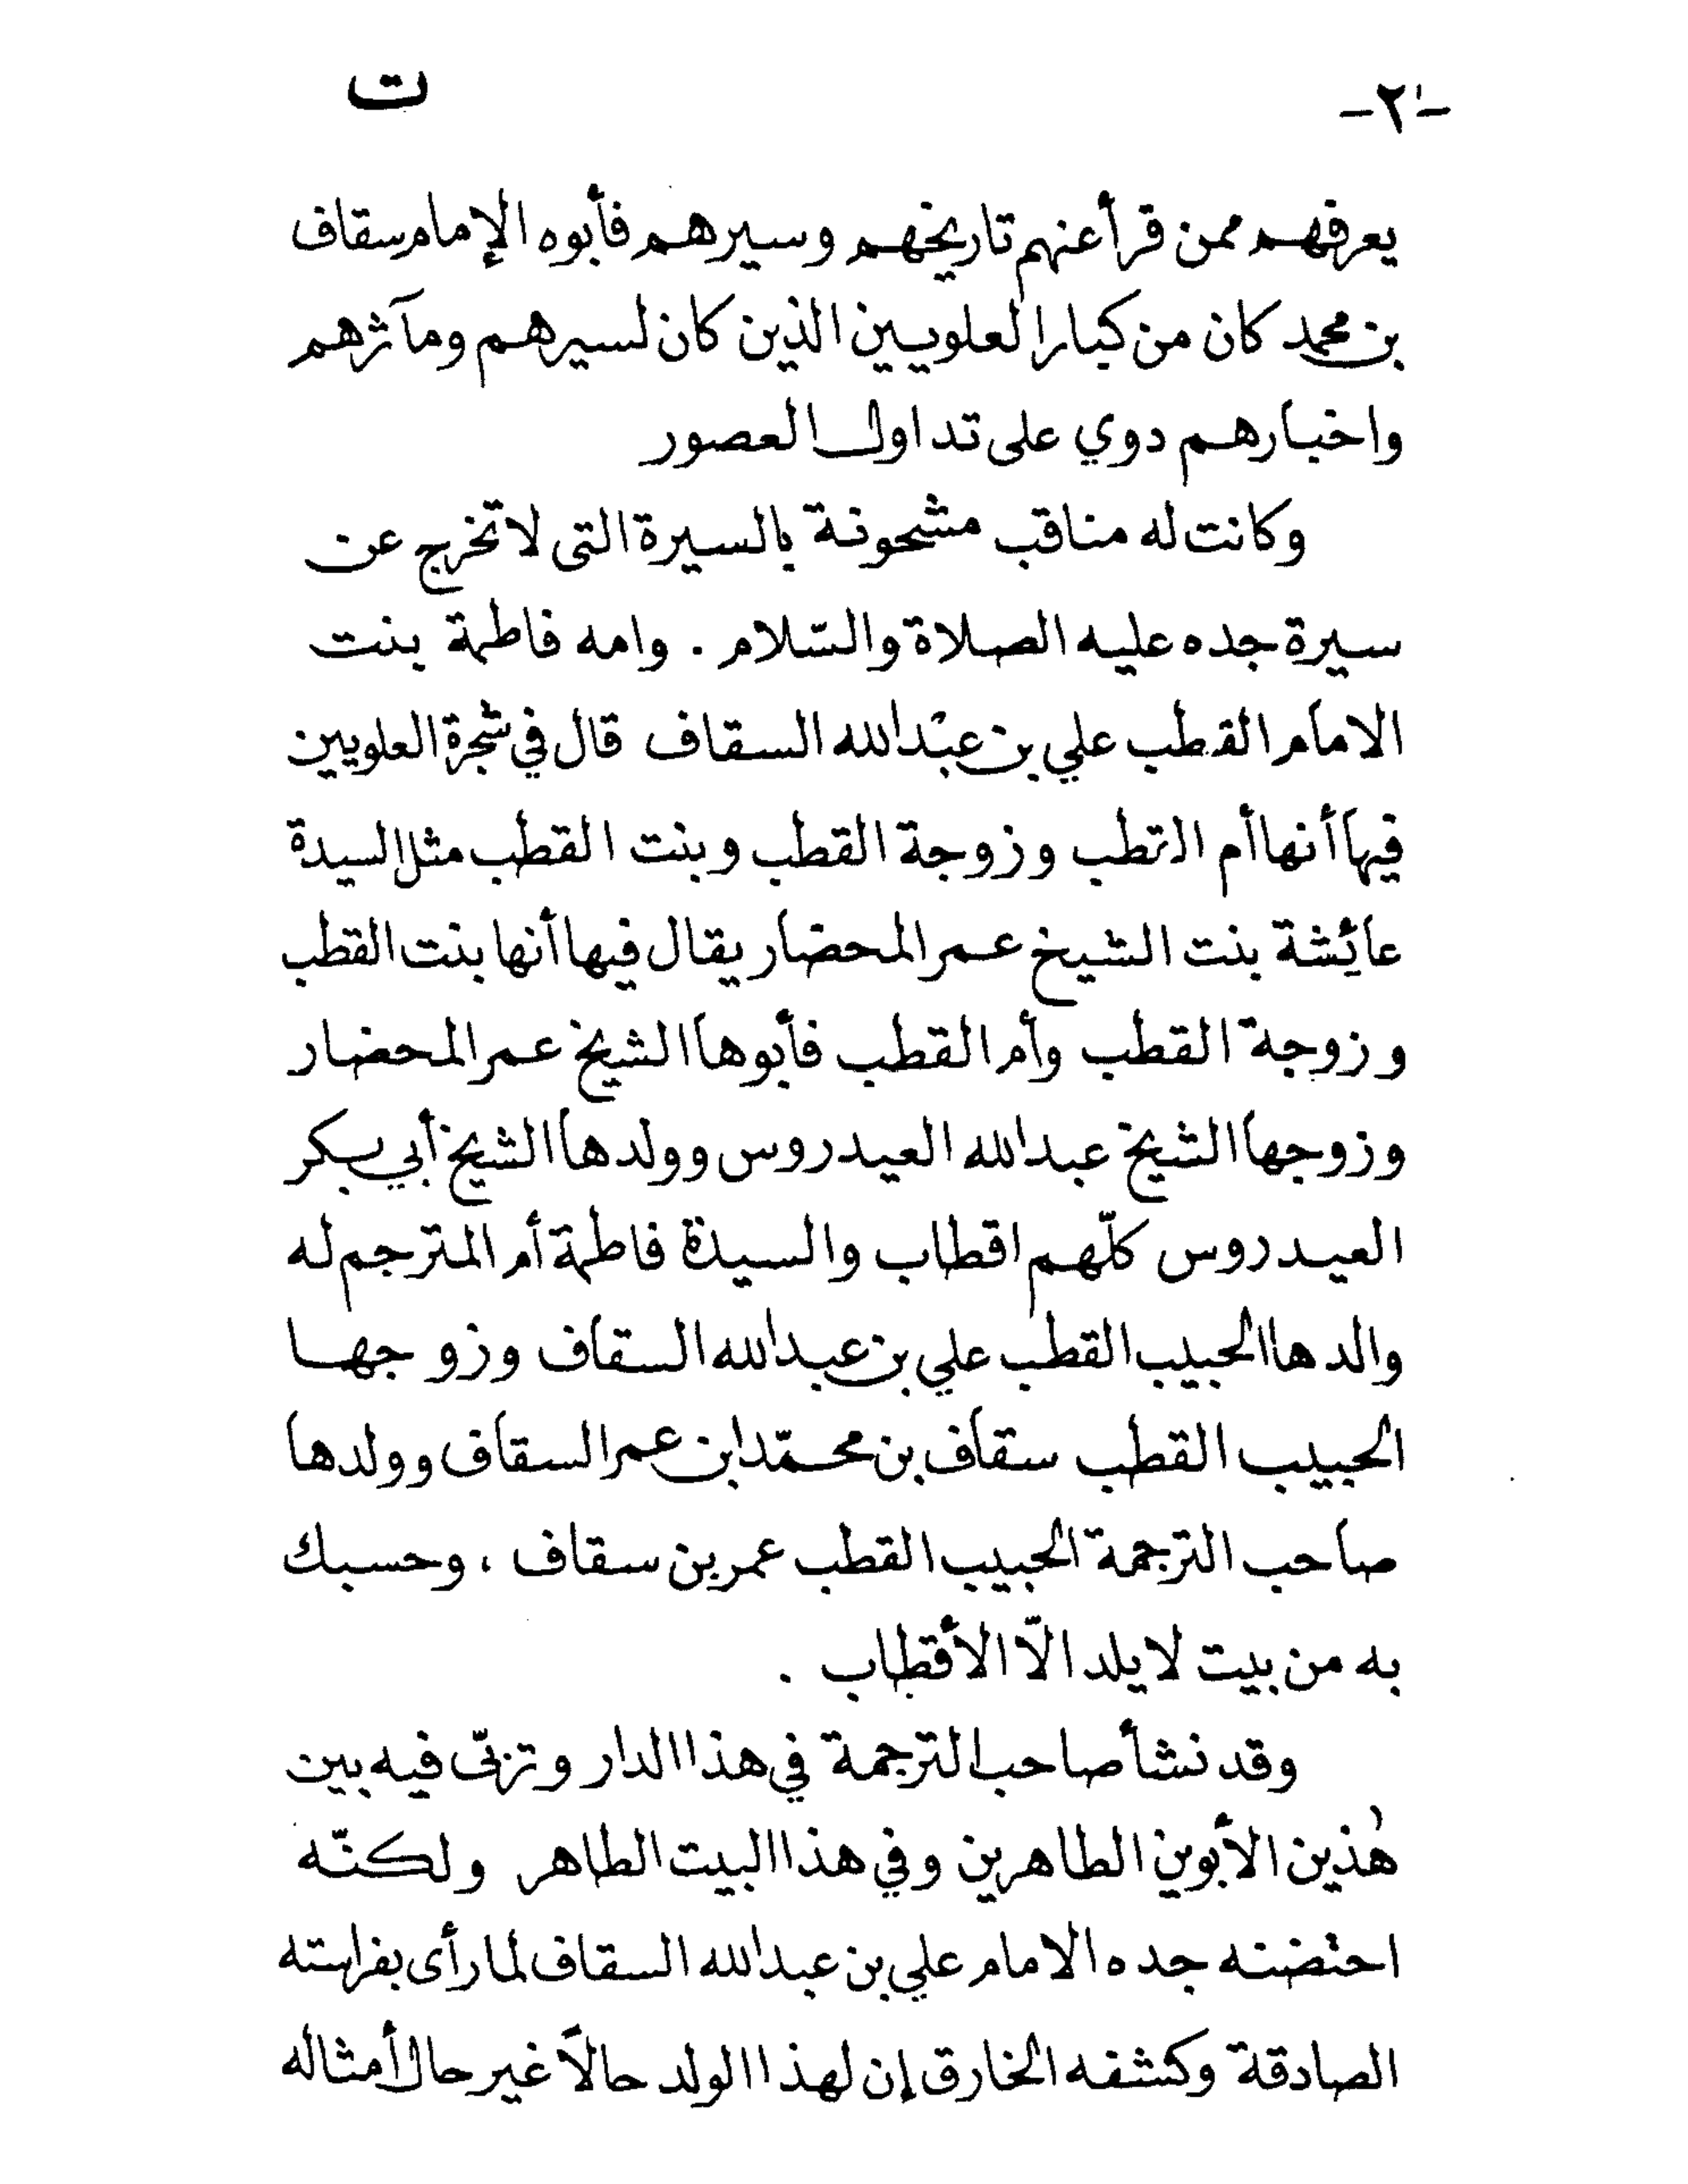 -٢- ت
يعرفهم ممن قرأ عنهم تاريخهم وسيرهم فأبوه الإمام سقاف
بن محمد كان من كبار العلويين الذين كان لسيرهم ومآثرهم
واخبارهم دوي على تداول العصور
وكانت له مناقب مشحونة بالسيرة التى لا تخرج عن
سيرة جده عليه الصلاة والسّلام . وامه فاطمة بنت
الامام القطب علي بن عبْدالله السقاف قال في شجرة العلويين
فيها أنها أم القطب وزوجة القطب وبنت القطب مثل السيدة
عائشة بنت الشيخ عمر المحضار يقال فيها أنها بنت القطب
وزوجة القطب وأم القطب فأبوها الشيخ عمر المحضار
وزوجها الشيخ عبدالله العيدروس وولدها الشيخ أبي بكر
العيدروس كلّهم اقطاب والسيدة فاطمة أم المترجم له
والدها الحبيب القطب علي بن عبدالله السقاف وزوجها
الحبيب القطب سقاف بن محمّد ابن عمر السقاف وولدها
صاحب الترجمة الحبيب القطب عمر بن سقاف ، وحسبك
به من بيت لا يلد الاّ الأقطاب .
وقد نشأ صاحب الترجمة في هذا الدار وتربّى فيه بين
هٰذين الأبوين الطاهرين وفي هذا البيت الطاهر ولكنّه
احتضنه جده الامام علي بن عبدالله السقاف لما رأى بفراسته
الصادقة وكشفه الخارق إن لهذا الولد حالاً غير حال أمثاله